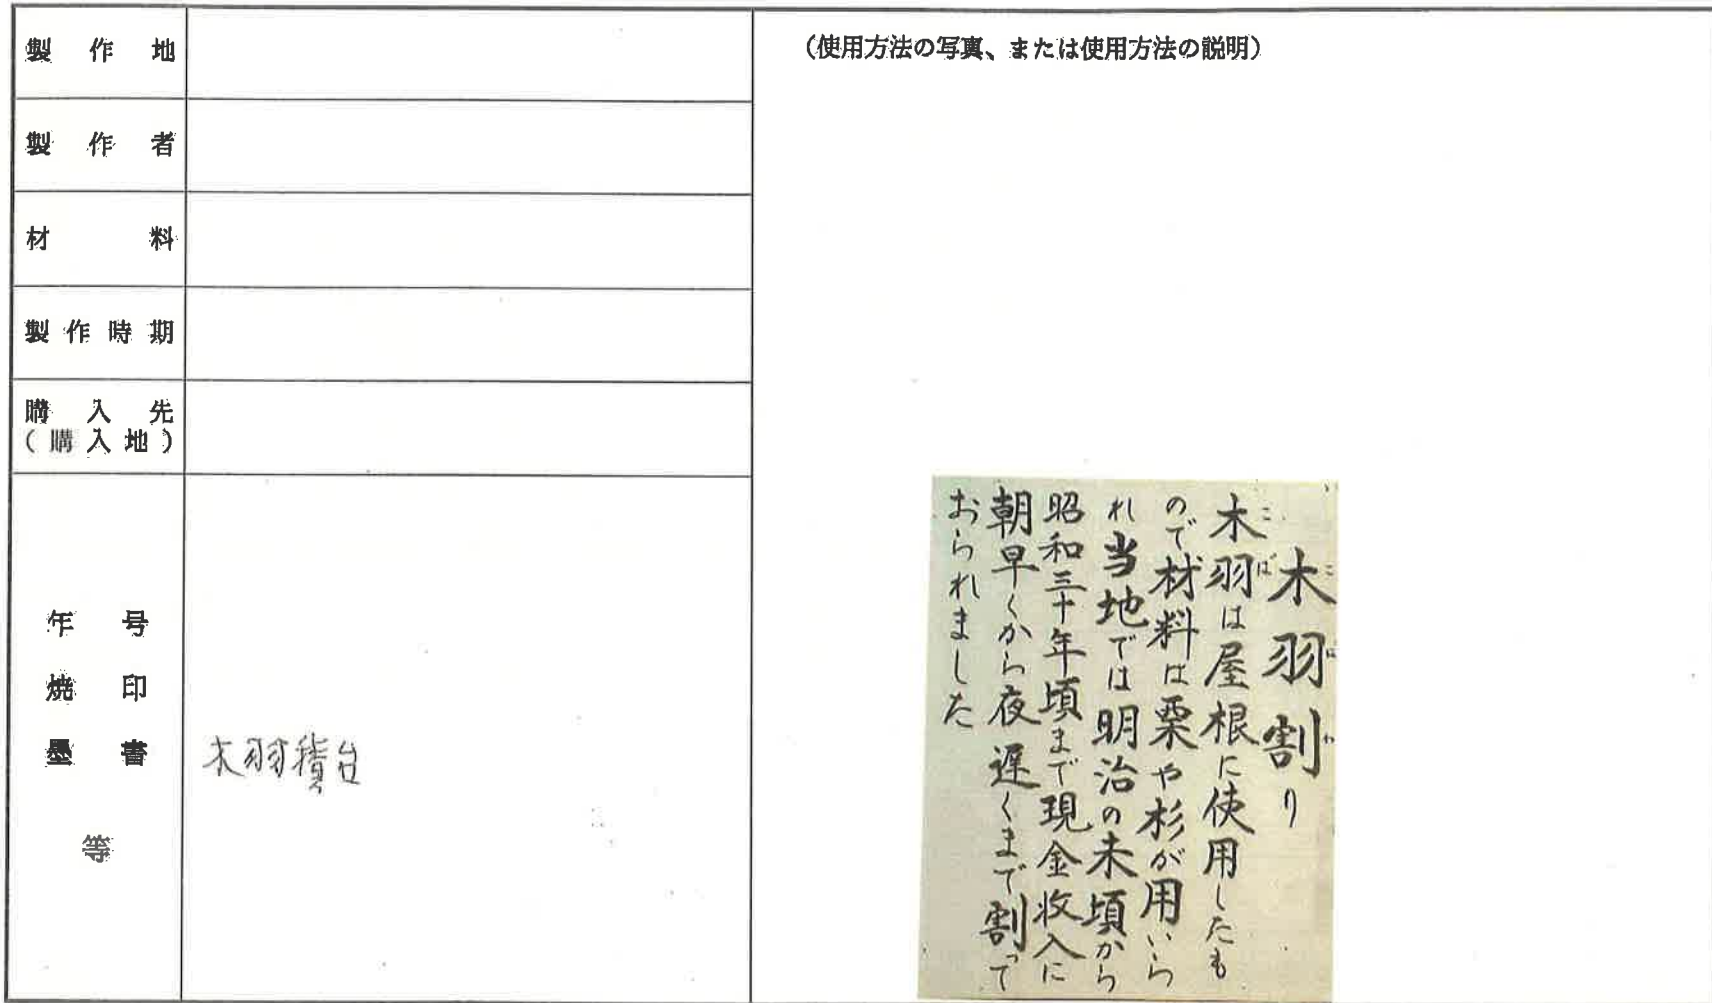 製作地
製作者
材料
製作時期
購入先
(購入地)
年号
焼印
墨書
等
木羽積台
(使用方法の写真、または使用方法の説明)
木羽割り
こばわ
木羽は屋根に使用したも
こば
ので材料は栗や杉が用いら
れ当地では明治の末頃から
昭和三十年頃まで現金収入に
朝早くから夜遅くまで割って
おられました